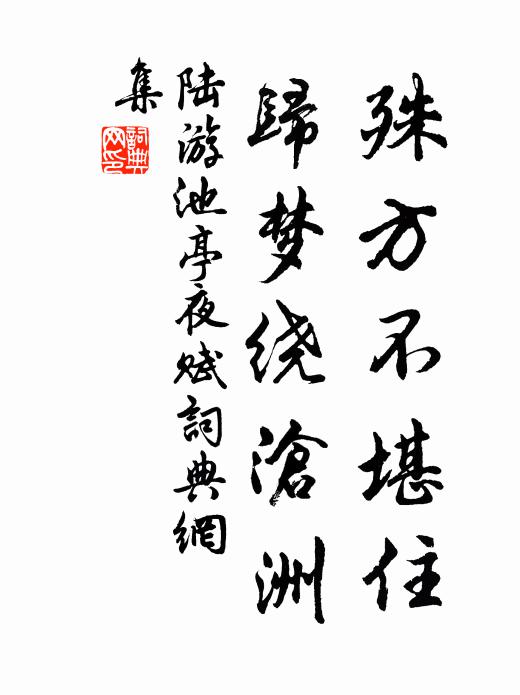 殊方不堪住
歸梦绕滄洲
陆游池亭夜赋詞典網
集
詞典网印